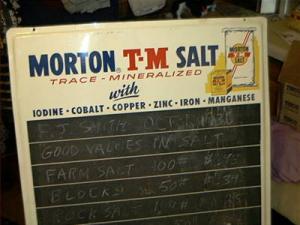 MORTON T-M SALT
TRACE-MINERALIZED
with
IODINE · COBALT · COPPER · ZINC · IRON · MANGANESE
MORTON
T-M
SALT
F.J. SMITH OCT.
GOOD VALUES IN SALT
FARM SALT 100#
BLOCKS 50#
ROCK SALT